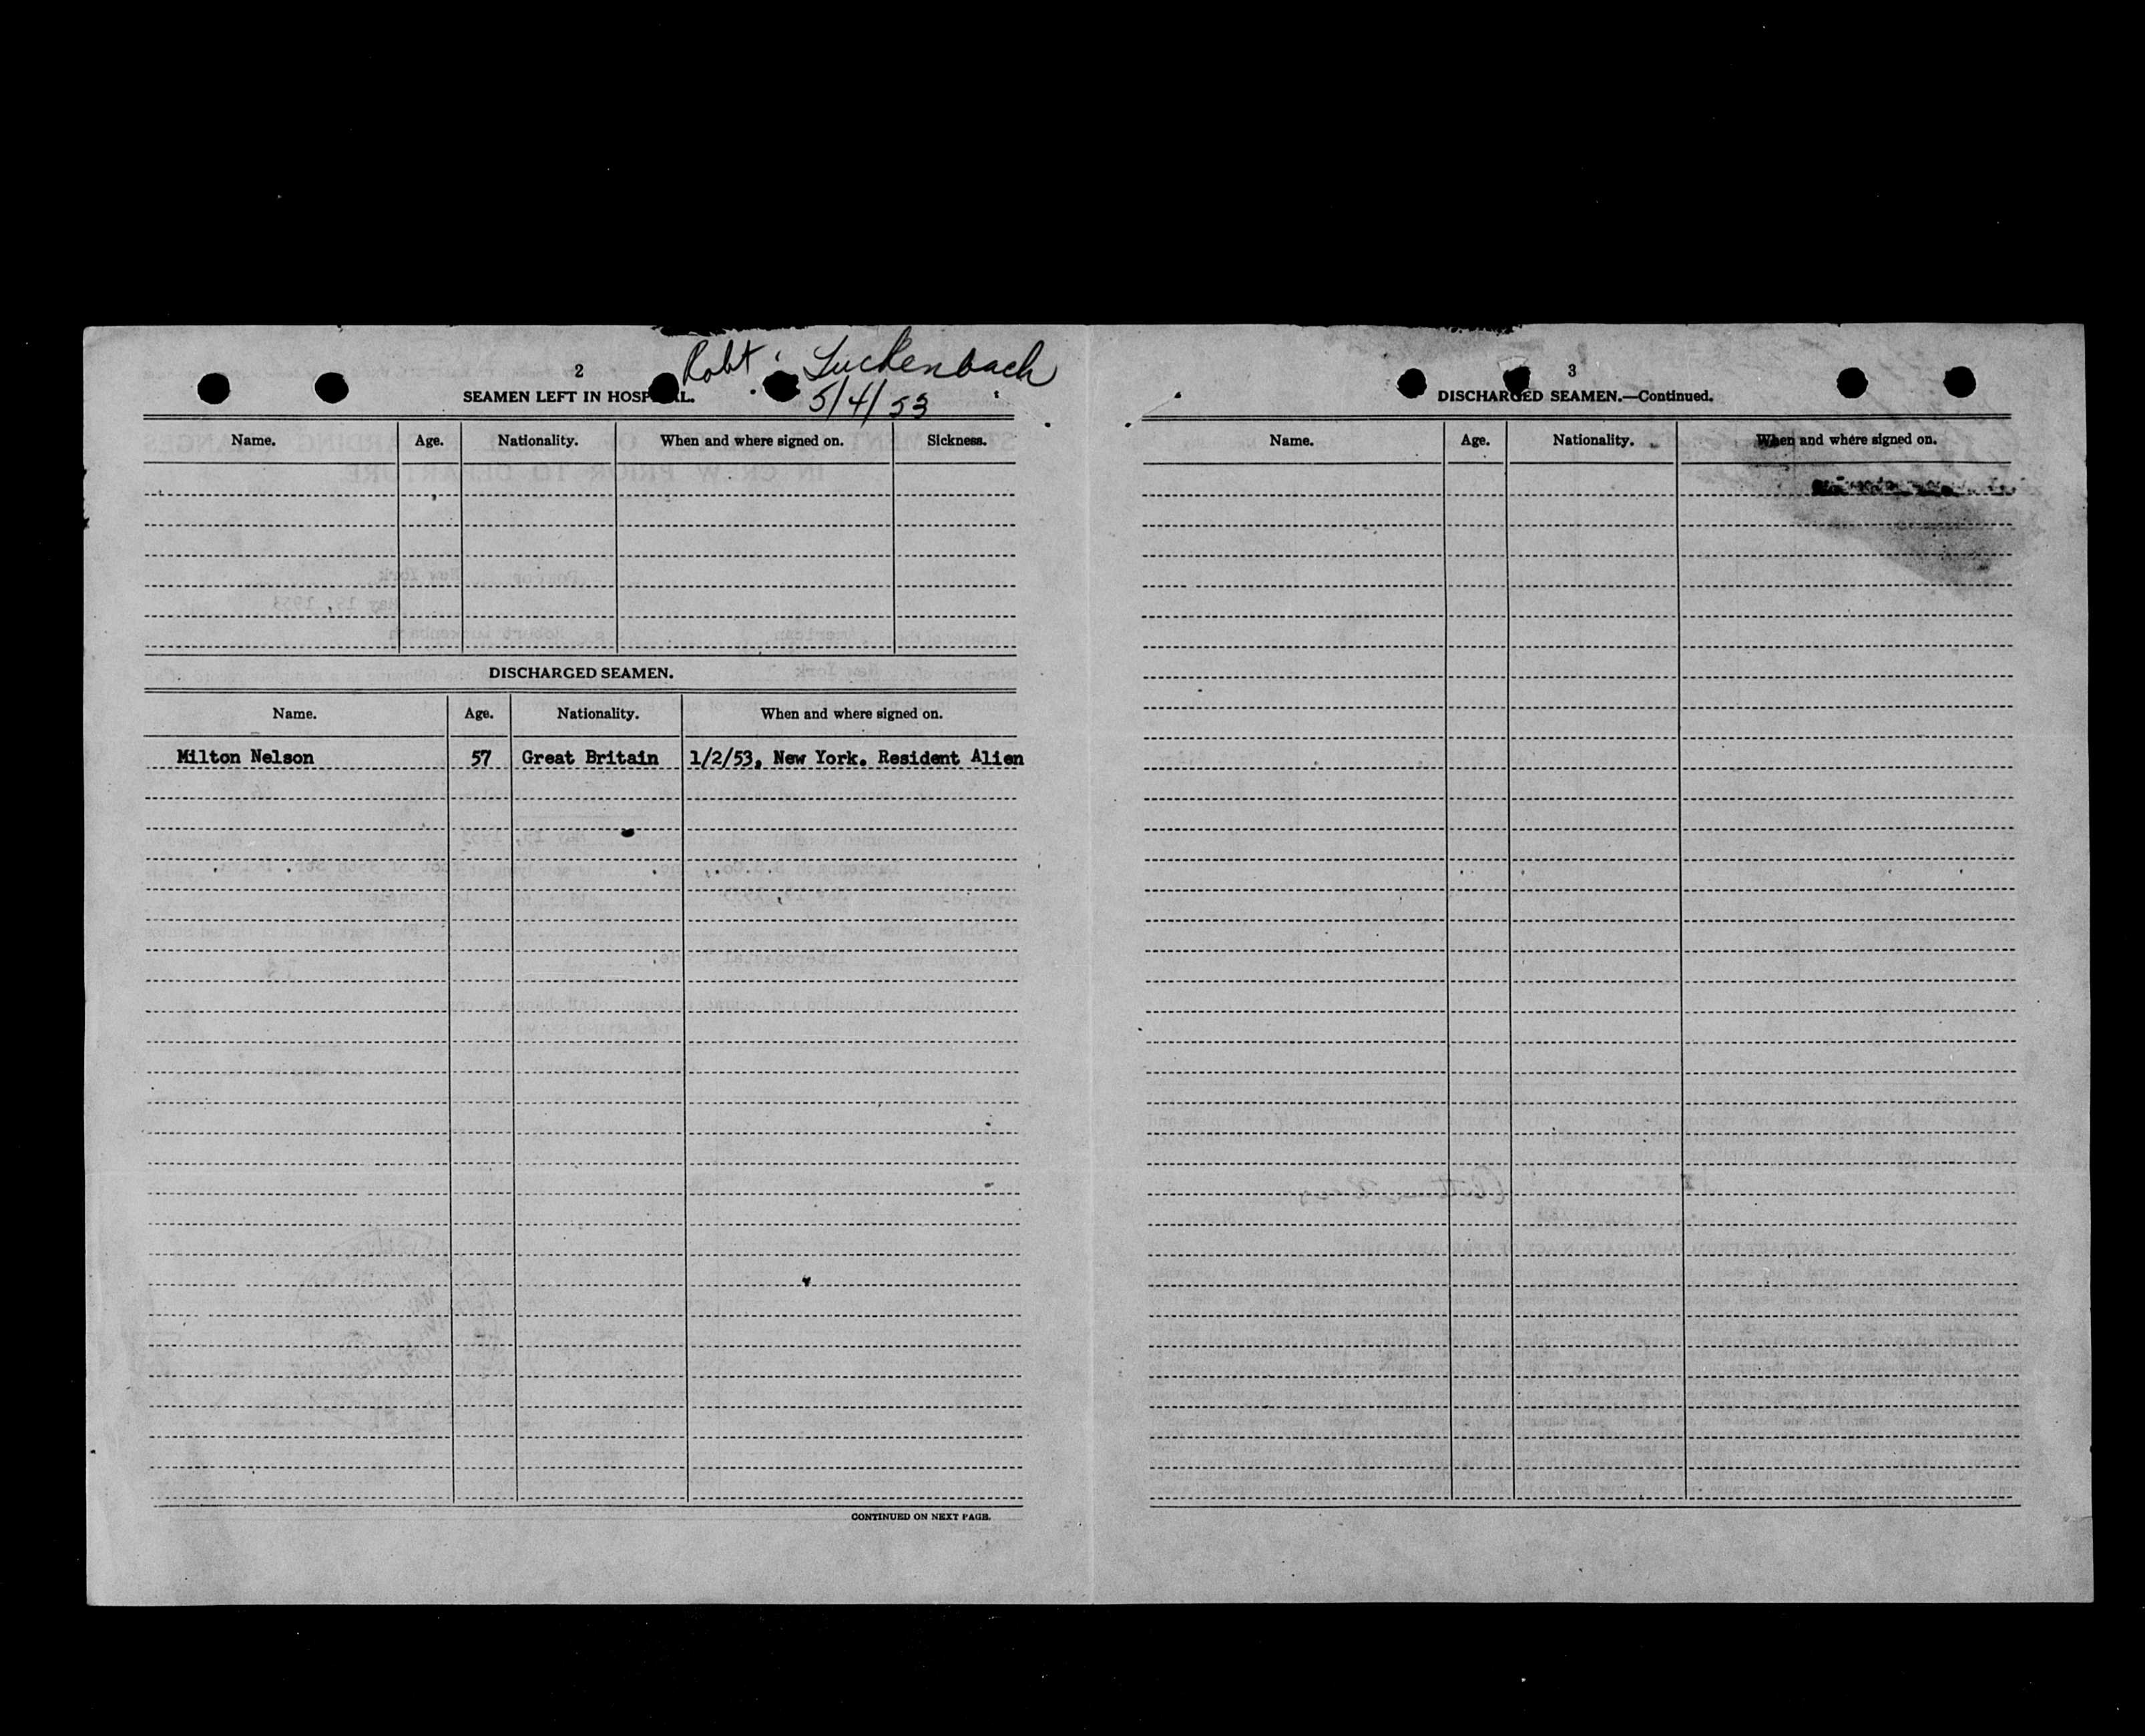 Robt. Luckenbach
5/4/53
2
SEAMEN LEFT IN HOSPITAL.
Name. Age. Nationality. When and where signed on. Sickness.
DISCHARGED SEAMEN.
Name. Age. Nationality. When and where signed on.
Milton Nelson 57 Great Britain 1/2/53, New York. Resident Alien
CONTINUED ON NEXT PAGE.
3
DISCHARGED SEAMEN.—Continued.
Name. Age. Nationality. When and where signed on.